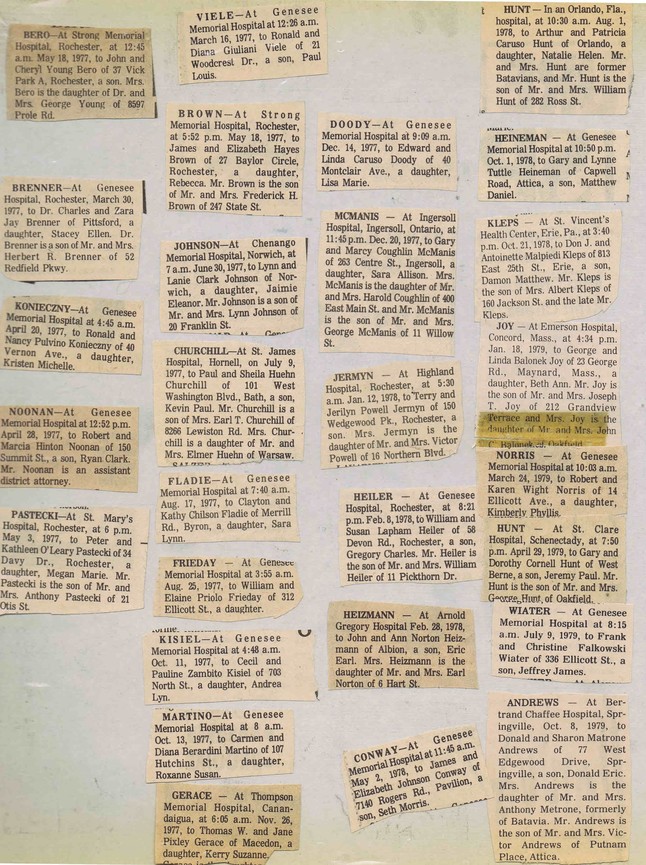 BERO—At Strong Memorial
Hospital, Rochester, at 12:45
a.m. May 18, 1977, to John and
Cheryl Young Bero of 37 Vick
Park A, Rochester, a son. Mrs.
Bero is the daughter of Dr. and
Mrs. George Young of 8597
Prole Rd.
BRENNER—At Genesee
Hospital, Rochester, March 30,
1977, to Dr. Charles and Zara
Jay Brenner of Pittsford, a
daughter, Stacey Ellen. Dr.
Brenner is a son of Mr. and Mrs.
Herbert R. Brenner of 52
Redfield Pkwy.
KONIECZNY—At Genesee
Memorial Hospital at 4:45 a.m.
April 20, 1977, to Ronald and
Nancy Pulvino Konieczny of 40
Vernon Ave., a daughter,
Kristen Michelle.
NOONAN—At Genesee
Memorial Hospital at 12:52 p.m.
April 28, 1977, to Robert and
Marcia Hinton Noonan of 150
Summit St., a son, Ryan Clark.
Mr. Noonan is an assistant
district attorney.
PASTECKI—At St. Mary's
Hospital, Rochester, at 6 p.m.
May 3, 1977, to Peter and
Kathleen O'Leary Pastecki of 34
Davy Dr., Rochester, a
daughter, Megan Marie. Mr.
Pastecki is the son of Mr. and
Mrs. Anthony Pastecki of 21
Otis St.
VIELE—At Genesee
Memorial Hospital at 12:26 a.m.
March 16, 1977, to Ronald and
Diana Giuliani Viele of 21
Woodcrest Dr., a son, Paul
Louis.
BROWN—At Strong
Memorial Hospital, Rochester,
at 5:52 p.m. May 18, 1977, to
James and Elizabeth Hayes
Brown of 27 Baylor Circle,
Rochester, a daughter,
Rebecca. Mr. Brown is the son
of Mr. and Mrs. Frederick H.
Brown of 247 State St.
JOHNSON—At Chenango
Memorial Hospital, Norwich, at
7 a.m. June 30, 1977, to Lynn and
Lanie Clark Johnson of Nor-
wich, a daughter, Jaimie
Eleanor. Mr. Johnson is a son of
Mr. and Mrs. Lynn Johnson of
20 Franklin St.
CHURCHILL—At St. James
Hospital, Hornell, on July 9,
1977, to Paul and Sheila Huehn
Churchill of 101 West
Washington Blvd., Bath, a son,
Kevin Paul. Mr. Churchill is a
son of Mrs. Earl T. Churchill of
8266 Lewiston Rd. Mrs. Chur-
chill is a daughter of Mr. and
Mrs. Elmer Huehn of Warsaw.
FLADIE—At Genesee
Memorial Hospital at 7:40 a.m.
Aug. 17, 1977, to Clayton and
Kathy Chilson Fladie of Merrill
Rd., Byron, a daughter, Sara
Lynn.
FRIEDAY—At Genesee
Memorial Hospital at 3:55 a.m.
Aug. 25, 1977, to William and
Elaine Priolo Frieday of 312
Ellicott St., a daughter.
KISIEL—At Genesee
Memorial Hospital at 4:48 a.m.
Oct. 11, 1977, to Cecil and
Pauline Zambito Kisiel of 703
North St., a daughter, Andrea
Lyn.
MARTINO—At Genesee
Memorial Hospital at 8 a.m.
Oct. 13, 1977, to Carmen and
Diana Berardini Martino of 107
Hutchins St., a daughter,
Roxanne Susan.
GERACE—At Thompson
Memorial Hospital, Canan-
daigua, at 6:05 a.m. Nov. 26,
1977, to Thomas W. and Jane
Pixley Gerace of Macedon, a
daughter, Kerry Suzanne.
DOODY—At Genesee
Memorial Hospital at 9:09 a.m.
Dec. 14, 1977, to Edward and
Linda Caruso Doody of 40
Montclair Ave., a daughter,
Lisa Marie.
MCMANIS — At Ingersoll
Hospital, Ingersoll, Ontario, at
11:45 p.m. Dec. 20, 1977, to Gary
and Marcy Coughlin McManis
of 263 Centre St., Ingersoll, a
daughter, Sara Allison. Mrs.
McManis is the daughter of Mr.
and Mrs. Harold Coughlin of 400
East Main St. and Mr. McManis
is the son of Mr. and Mrs.
George McManis of 11 Willow
St.
JERMYN — At Highland
Hospital, Rochester, at 5:30
a.m. Jan. 12, 1978, to Terry and
Jerilyn Powell Jermyn of 150
Wedgewood Pk., Rochester, a
son. Mrs. Jermyn is the
daughter of Mr. and Mrs. Victor
Powell of 16 Northern Blvd.
HEILER — At Genesee
Hospital, Rochester, at 8:21
p.m. Feb. 8, 1978, to William and
Susan Lapham Heiler of 58
Devon Rd., Rochester, a son,
Gregory Charles. Mr. Heiler is
the son of Mr. and Mrs. William
Heiler of 11 Pickthorn Dr.
HEIZMANN — At Arnold
Gregory Hospital Feb. 28, 1978,
to John and Ann Norton Heiz-
mann of Albion, a son, Eric
Earl. Mrs. Heizmann is the
daughter of Mr. and Mrs. Earl
Norton of 6 Hart St.
CONWAY—At Genesee
Memorial Hospital at 11:45 a.m.
May 2, 1978, to James and
Elizabeth Johnson Conway of
7140 Rogers Rd., Pavilion, a
son, Seth Morris.
HUNT — In an Orlando, Fla.,
hospital, at 10:30 a.m. Aug. 1,
1978, to Arthur and Patricia
Caruso Hunt of Orlando, a
daughter, Natalie Helen. Mr.
and Mrs. Hunt are former
Batavians, and Mr. Hunt is the
son of Mr. and Mrs. William
Hunt of 282 Ross St.
HEINEMAN — At Genesee
Memorial Hospital at 10:50 p.m.
Oct. 1, 1978, to Gary and Lynne
Tuttle Heineman of Capwell
Road, Attica, a son, Matthew
Daniel.
KLEPS — At St. Vincent's
Health Center, Erie, Pa., at 3:40
p.m. Oct. 21, 1978, to Don J. and
Antoinette Malpiedi Kleps of 813
East 25th St., Erie, a son,
Damon Matthew. Mr. Kleps is
the son of Mrs. Albert Kleps of
160 Jackson St. and the late Mr.
Kleps.
JOY — At Emerson Hospital,
Concord, Mass., at 4:34 p.m.
Jan. 18, 1979, to George and
Linda Balonek Joy of 23 George
Rd., Maynard, Mass., a
daughter, Beth Ann. Mr. Joy is
the son of Mr. and Mrs. Joseph
T. Joy of 212 Grandview
Terrace and Mrs. Joy is the
daughter of Mr. and Mrs. John
Balonek of Oakfield.
NORRIS — At Genesee
Memorial Hospital at 10:03 a.m.
March 24, 1979, to Robert and
Karen Wight Norris of 14
Ellicott Ave., a daughter,
Kimberly Phyllis.
HUNT — At St. Clare
Hospital, Schenectady, at 7:50
p.m. April 29, 1979, to Gary and
Dorothy Cornell Hunt of West
Berne, a son, Jeremy Paul. Mr.
Hunt is the son of Mr. and Mrs.
George Hunt of Oakfield.
WIATER — At Genesee
Memorial Hospital at 8:15
a.m. July 9, 1979, to Frank and
Christine Falkowski
Wiater of 336 Ellicott St., a
son, Jeffrey James.
ANDREWS — At Ber-
trand Chaffee Hospital, Spr-
ingville, Oct. 8, 1979, to
Donald and Sharon Matrone
Andrews of 77 West
Edgewood Drive, Spr-
ingville, a son, Donald Eric.
Mrs. Andrews is the
daughter of Mr. and Mrs.
Anthony Metrone, formerly
of Batavia. Mr. Andrews is
the son of Mr. and Mrs. Vic-
tor Andrews of Putnam
Place, Attica.